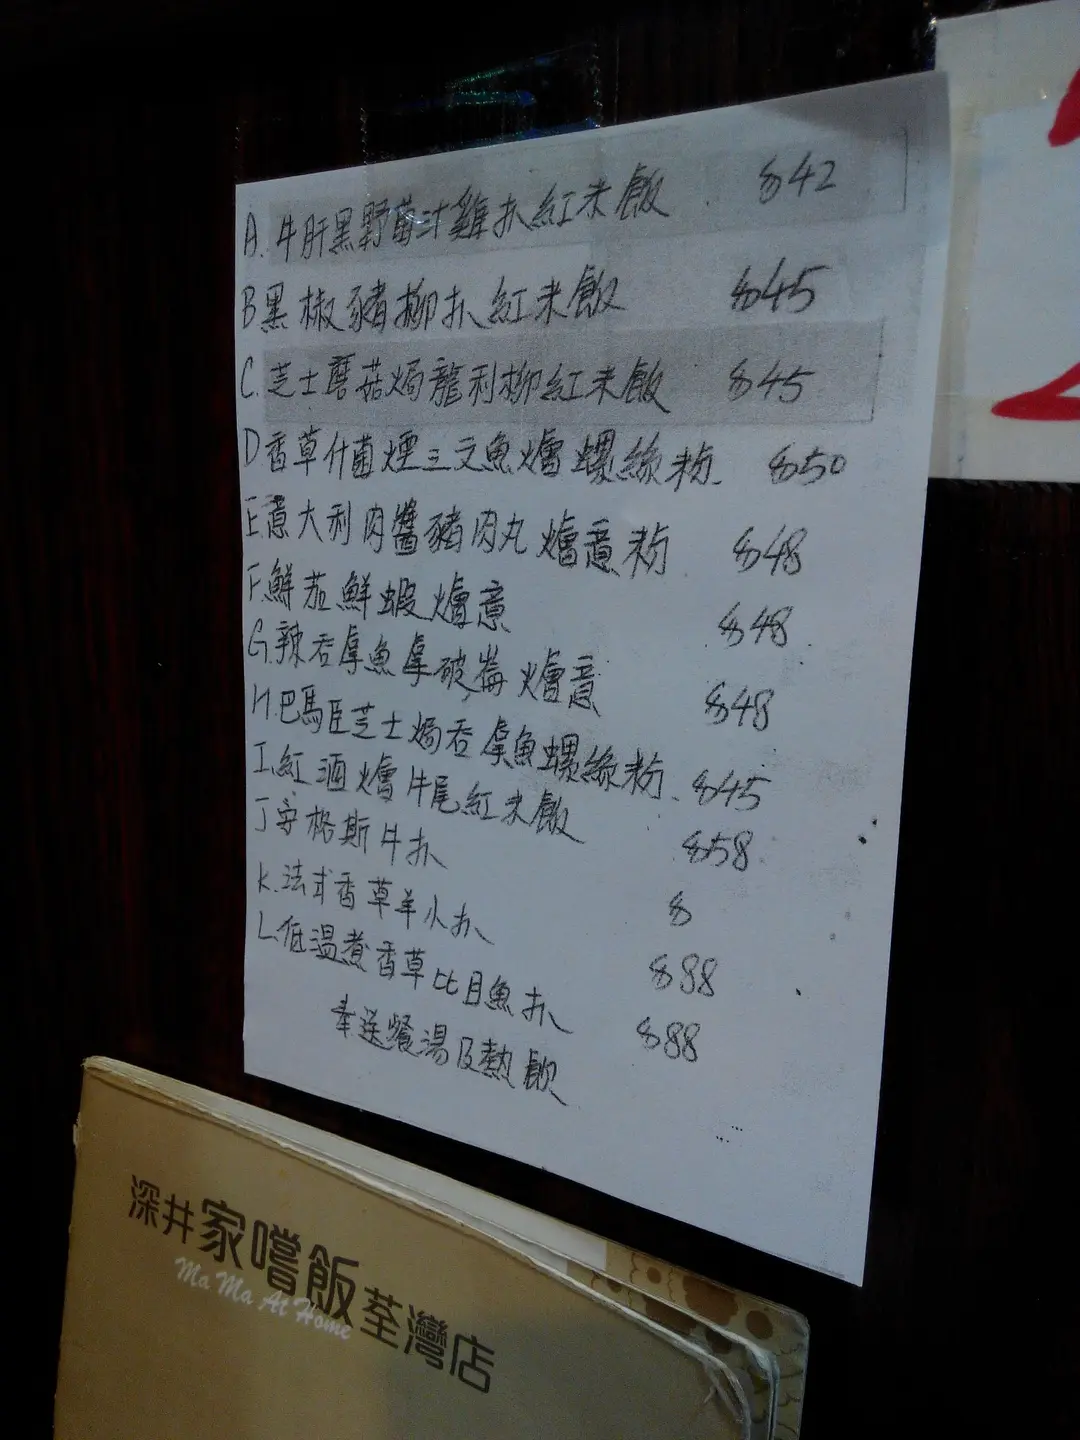 A. 牛肝黑野菌汁雞扒紅米飯 $42
B 黑椒豬柳扒紅米飯 $45
C. 芝士蘑菇焗龍利柳紅米飯 $45
D 香草什菌煙三文魚燴螺絲粉 $50
E. 意大利肉醬豬肉丸燴意粉 $48
F. 鮮茄鮮蝦燴意 $48
G. 辣吞拿魚拿破崙燴意 $48
H. 巴馬臣芝士焗吞拿魚螺絲粉 $45
I. 紅酒燴牛尾紅米飯 $58
J 安格斯牛扒 $
K. 法式香草羊小扒 $88
L. 低溫煮香草比目魚扒 $88
奉送餐湯及熱飲
深井家嚐飯荃灣店
Ma Ma At Home